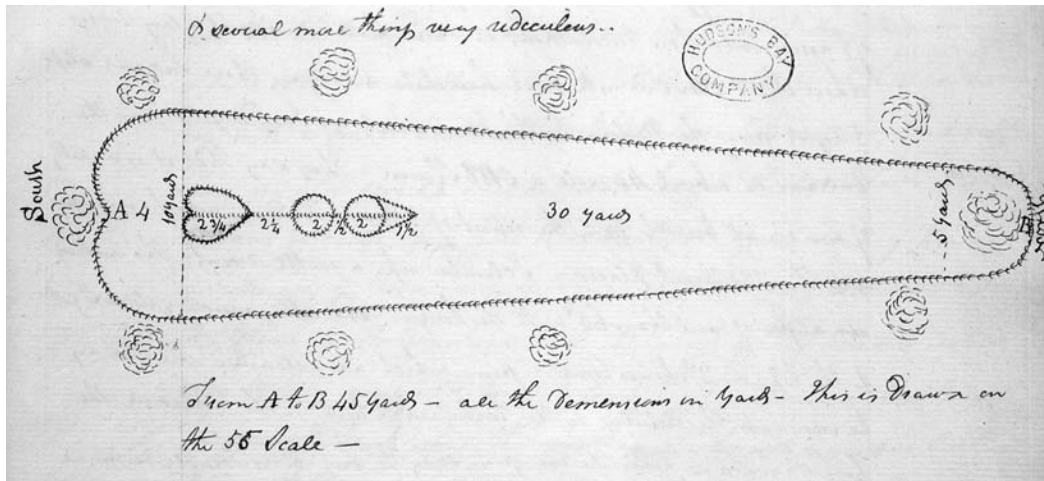 & several more things very rediculous..
HUDSON'S BAY
COMPANY
South
A 4
10 yards
2 3/4
2 1/4
2
1/2
2
1 1/2
30 yards
5 yards
B
From A to B 45 yards — all the Demensions in yards — This is Drawn on
the 55 Scale —